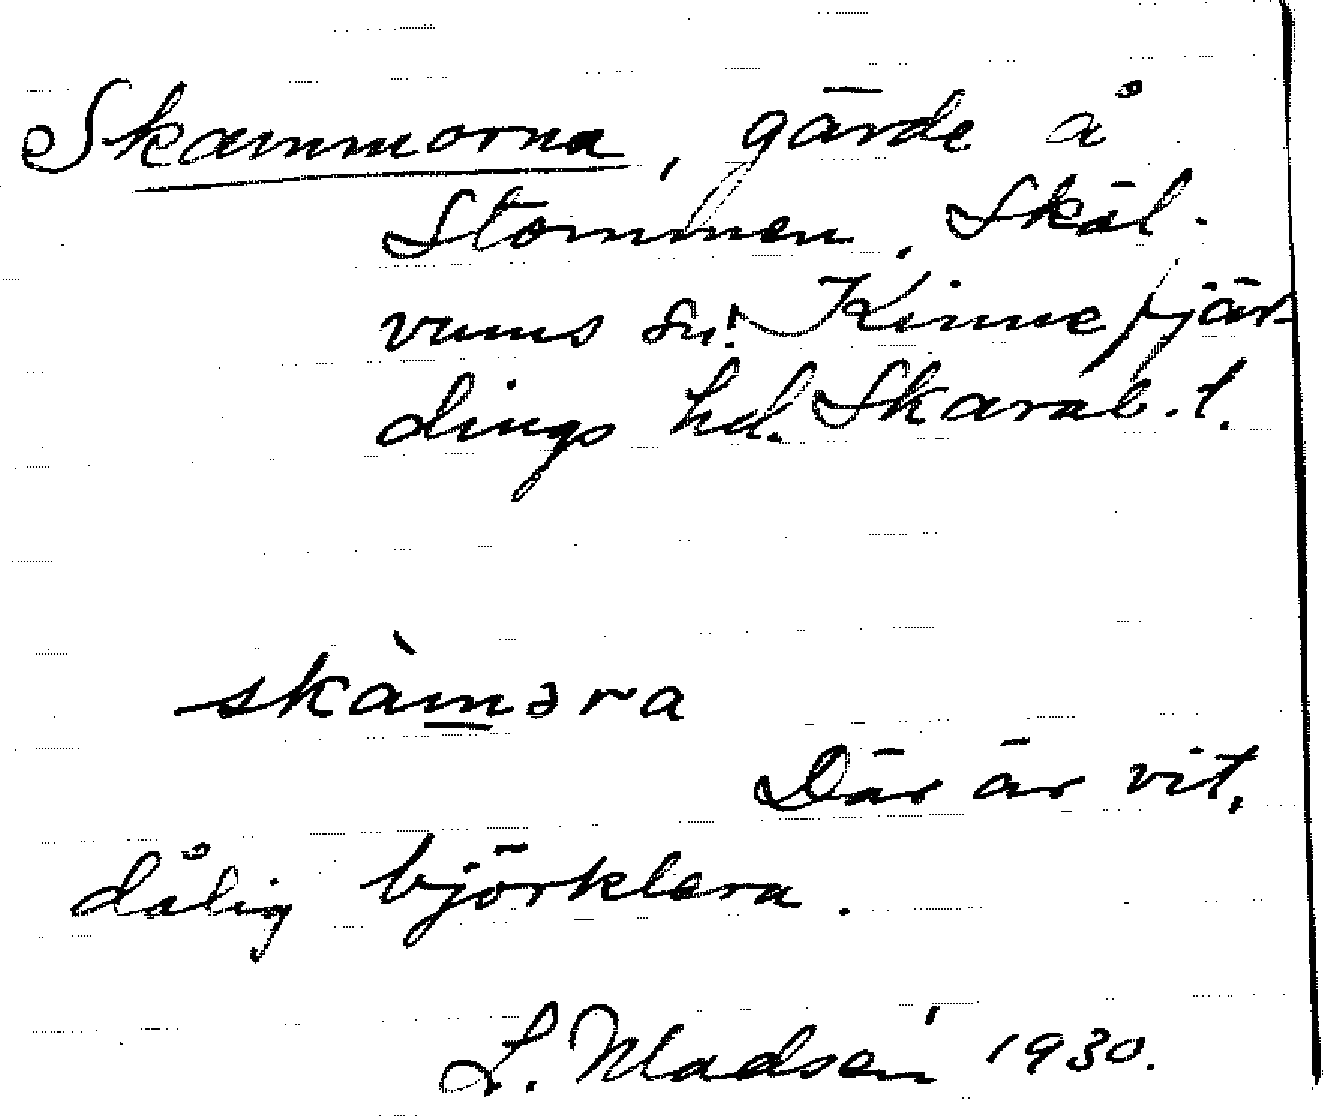 Skammorna, gärde å
Stommen, Skäl-
vums sn. Kinnefjär-
dings hd. Skarab. l.
skàməra
Där är vit,
dålig björklera.
L. Madsén 1930.